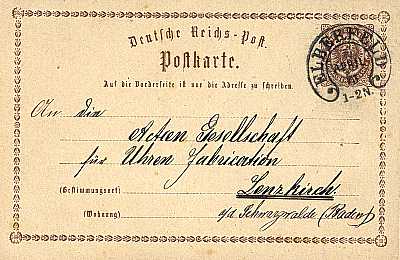 Deutsche Reichs-Post.
Postkarte.
Auf die Vorderseite ist nur die Adresse zu schreiben.
ELBERFELD
1-2N.
An die
Actien Gesellschaft
für Uhren Fabrication
(Bestimmungsort) Lenzkirch
(Wohnung) a/d Schwarzwalde (Baden)